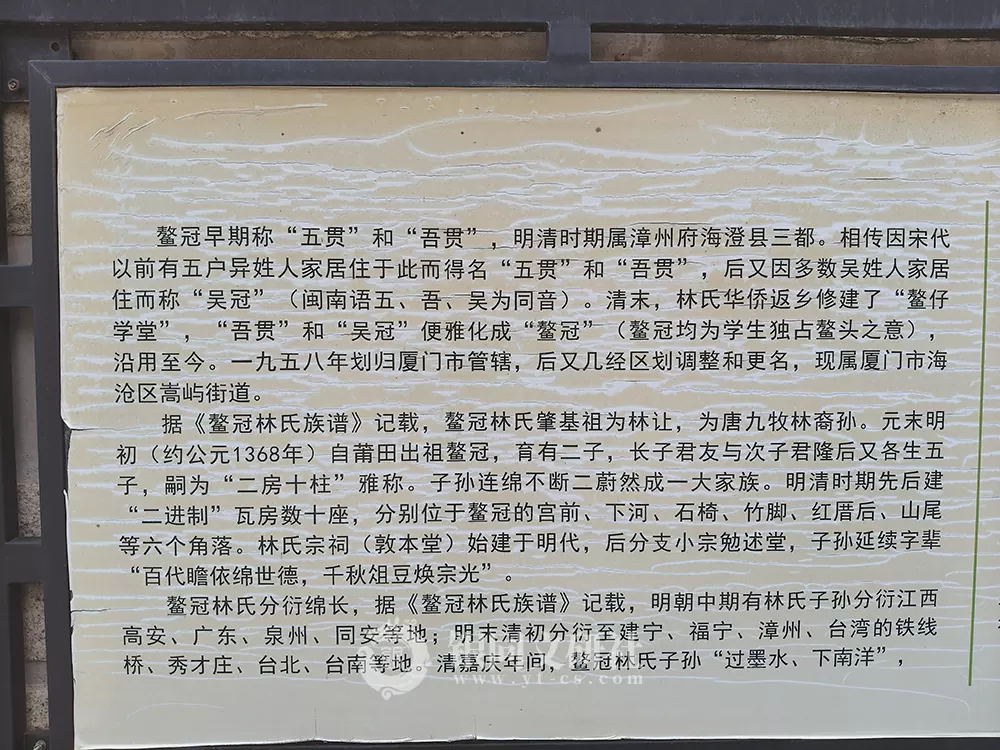 鳌冠早期称“五贯”和“吾贯”，明清时期属漳州府海澄县三都。相传因宋代
以前有五户异姓人家居住于此而得名“五贯”和“吾贯”，后又因多数吴姓人家居
住而称“吴冠”（闽南语五、吾、吴为同音）。清末，林氏华侨返乡修建了“鳌仔
学堂”，“吾贯”和“吴冠”便雅化成“鳌冠”（鳌冠均为学生独占鳌头之意），
沿用至今。一九五八年划归厦门市管辖，后又几经区划调整和更名，现属厦门市海
沧区嵩屿街道。
据《鳌冠林氏族谱》记载，鳌冠林氏肇基祖为林让，为唐九牧林裔孙。元末明
初（约公元1368年）自莆田出祖鳌冠，育有二子，长子君友与次子君隆后又各生五
子，嗣为“二房十柱”雅称。子孙连绵不断二蔚然成一大家族。明清时期先后建
“二进制”瓦房数十座，分别位于鳌冠的宫前、下河、石椅、竹脚、红厝后、山尾
等六个角落。林氏宗祠（敦本堂）始建于明代，后分支小宗勉述堂，子孙延续字辈
“百代瞻依绵世德，千秋俎豆焕宗光”。
鳌冠林氏分衍绵长，据《鳌冠林氏族谱》记载，明朝中期有林氏子孙分衍江西
高安、广东、泉州、同安等地；明末清初分衍至建宁、福宁、漳州、台湾的铁线
桥、秀才庄、台北、台南等地。清嘉庆年间，鳌冠林氏子孙“过墨水、下南洋”，
www.yt-cs.com